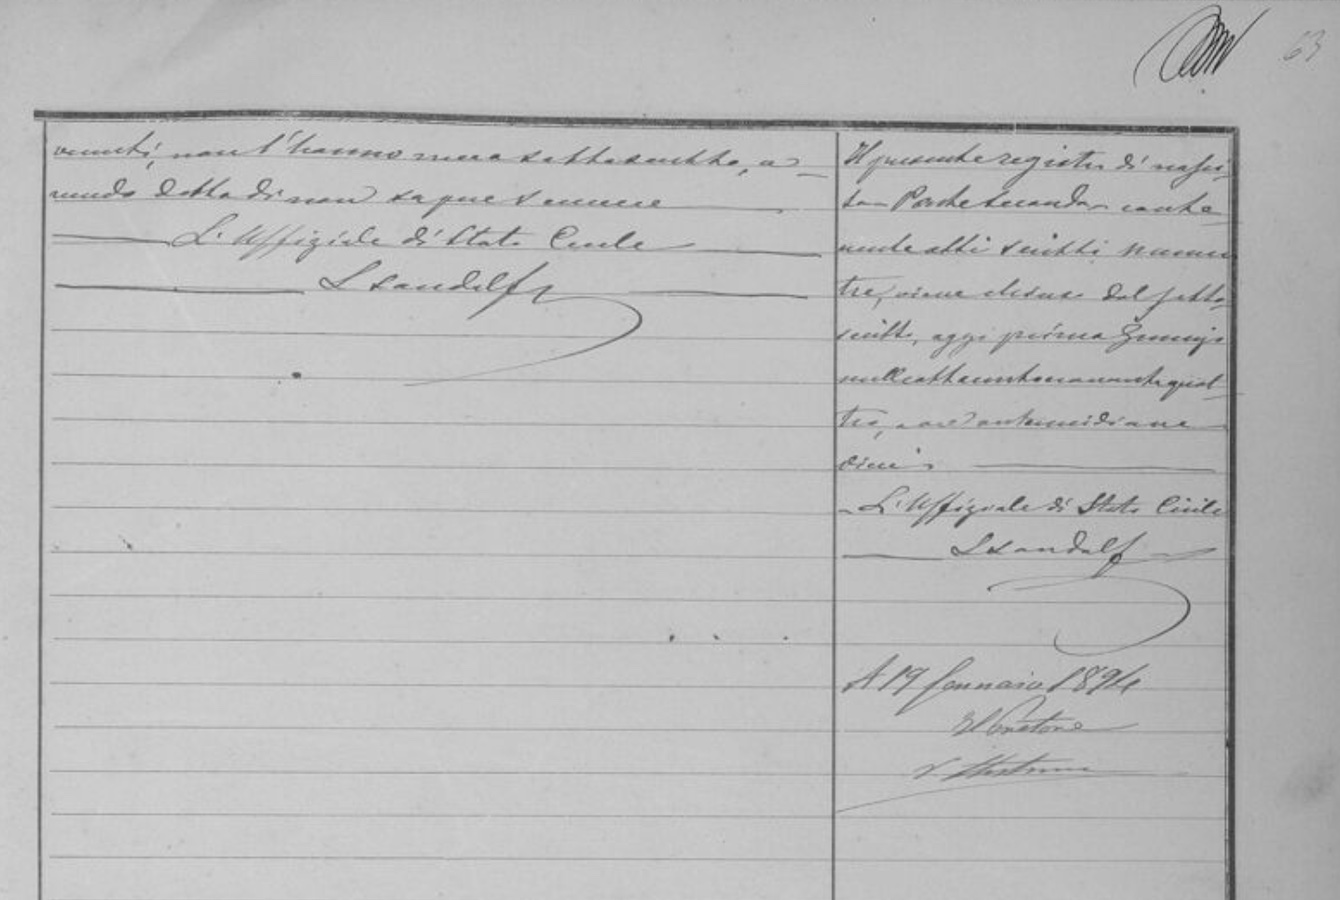 63
venuti, non l'hanno meco sottoscritto, a-
vendo detto di non sapere scrivere
L'Uffiziale di Stato Civile
Il presente registro di nasci-
ta Parte seconda conte
nente atti scritti numero
tre, viene chiuso dal sotto
scritto, oggi primo Gennajo
milleottocentonovantaquat-
tro, ore antemeridiane
dieci
L'Uffiziale di Stato Civile
A 19 Gennaio 1894
Il Pretore